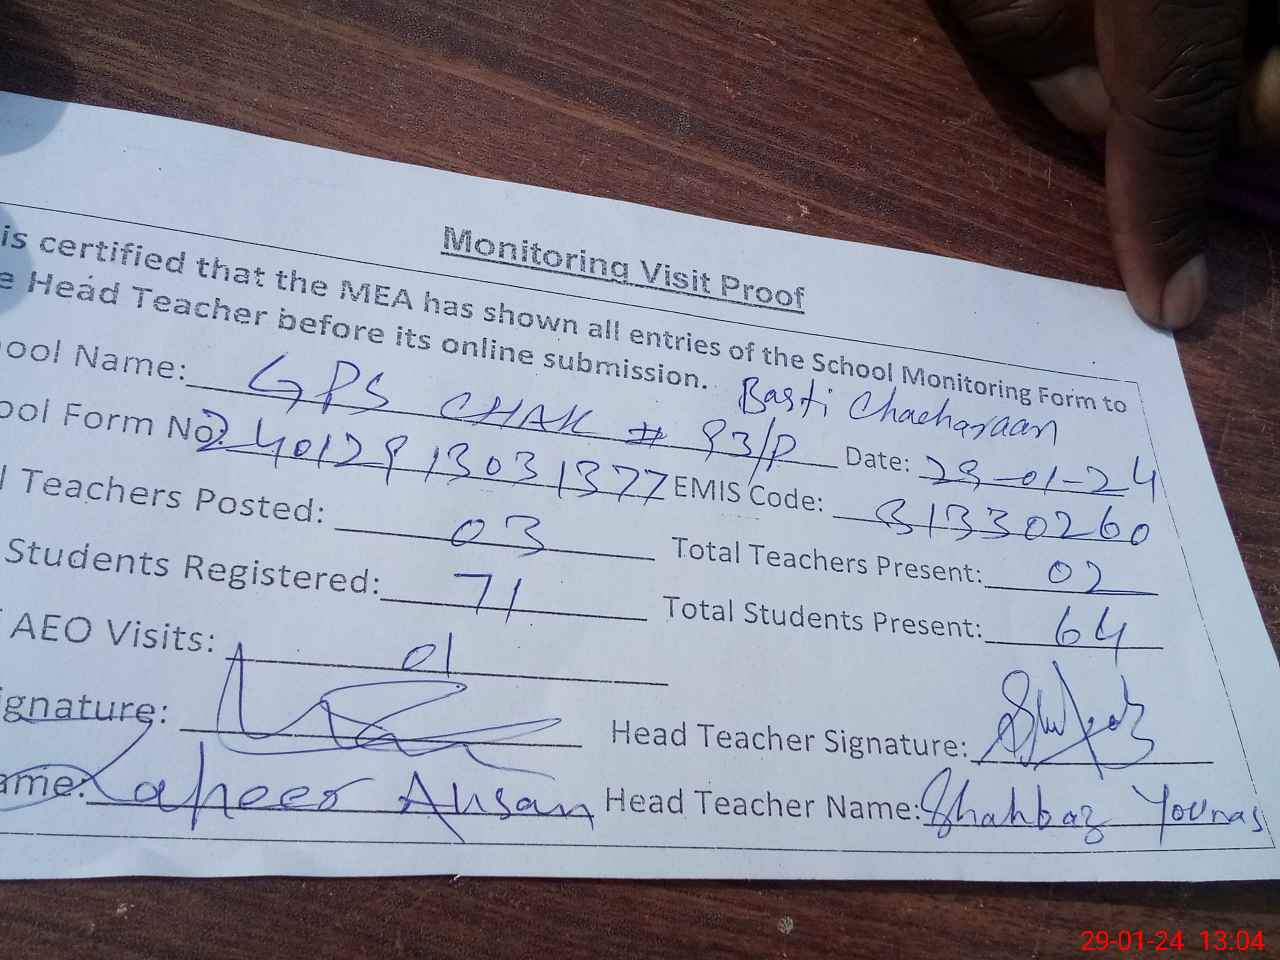 Monitoring Visit Proof
is certified that the MEA has shown all entries of the School Monitoring Form to
e Head Teacher before its online submission.
ool Name: GPS CHAK # 93/P Basti Chacharaan
ool Form No. 24012913031377 Date: 29-01-24
l Teachers Posted: 03 EMIS Code: 31330260
Students Registered: 71 Total Teachers Present: 02
AEO Visits: 01 Total Students Present: 64
ignature: Head Teacher Signature:
ame: Zaheer Ahsan Head Teacher Name: Shahbaz Younas
29-01-24 13:04